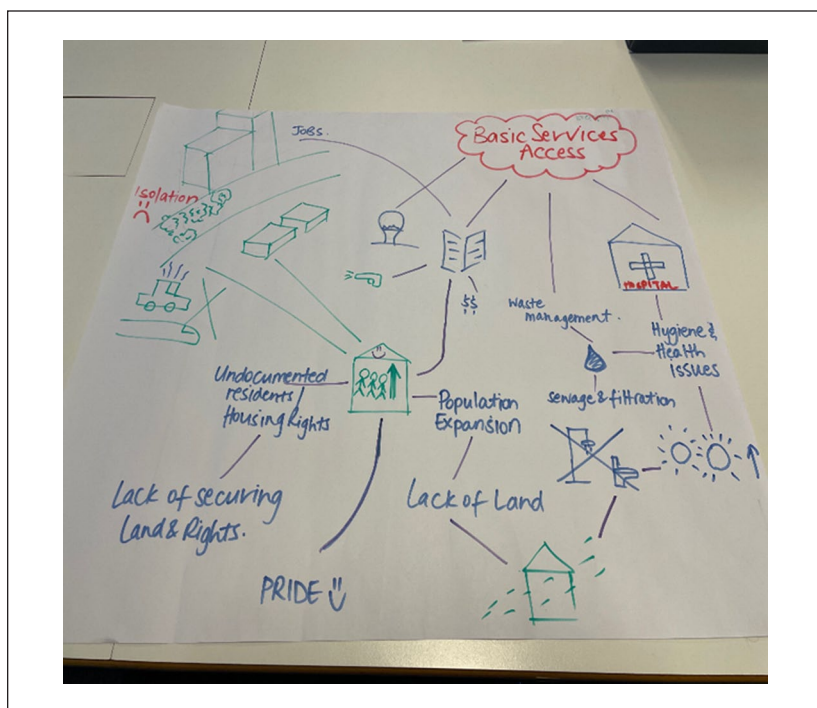 JOBS.
Basic Services
Access
Isolation
HOSPITAL
Waste
management.
Hygiene &
Health
Issues
sewage & filtration
Undocumented
residents
Housing Rights
Population
Expansion
Lack of securing
Land & Rights.
Lack of Land
PRIDE